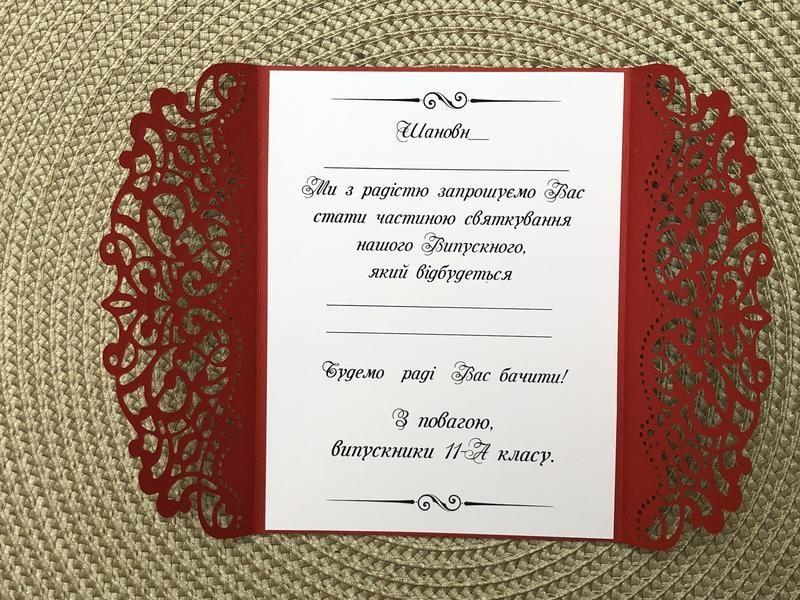 Шановн__
Ми з радістю запрошуємо Вас
стати частиною святкування
нашого Випускного,
який відбудеться
Будемо раді Вас бачити!
З повагою,
випускники 11-А класу.